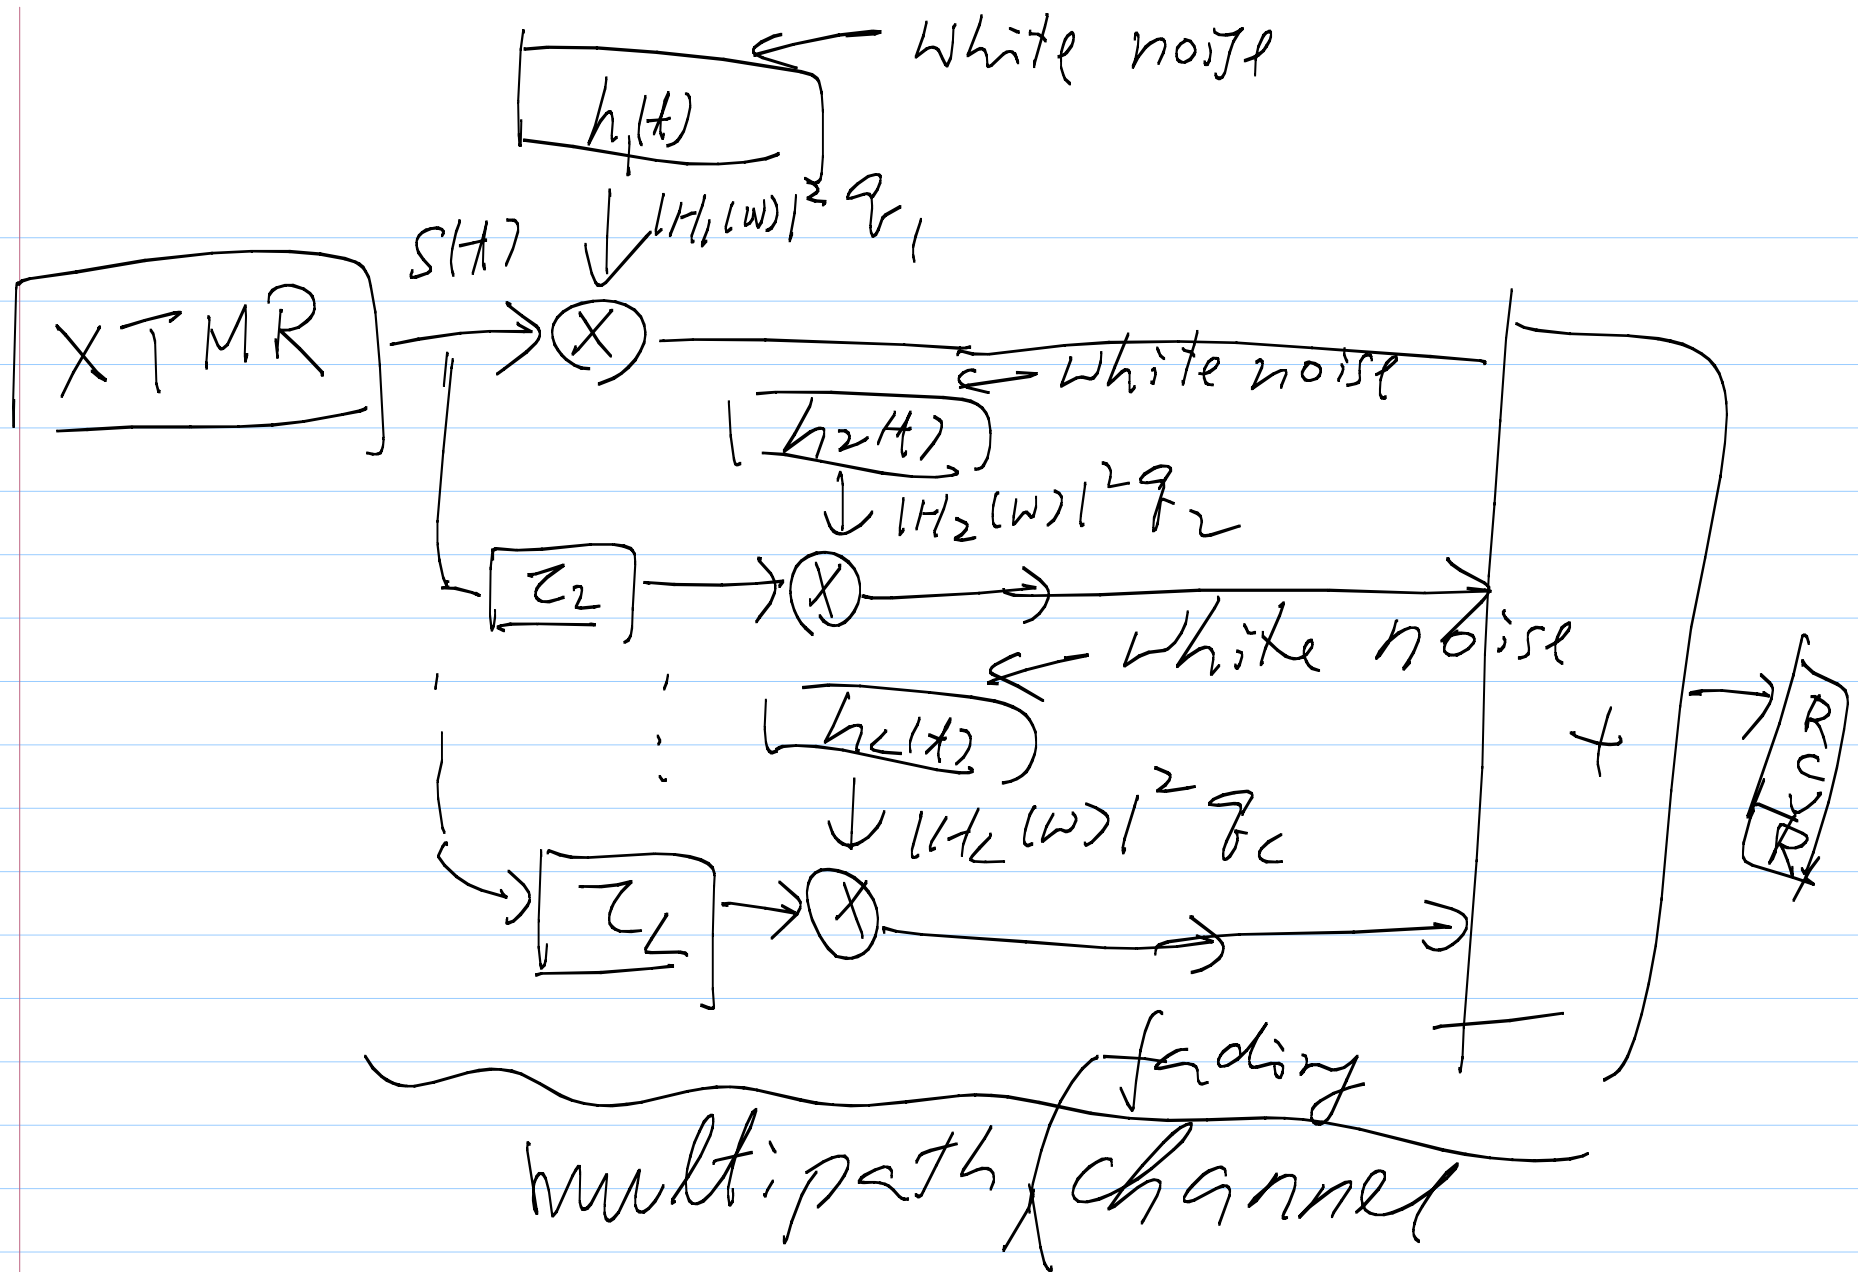 White noise
h₁(t)
|H₁(W)|² q₁
S(t)
XTMR
X
White noise
h₂(t)
|H₂(W)|² q₂
τ₂
X
White noise
h_L(t)
+
RCVR
|H_L(W)|² q_L
τ_L
X
fading
multipath channel